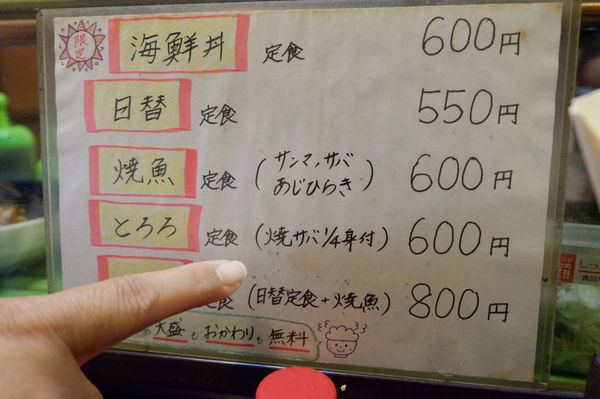 限定 海鮮丼 定食 600円
日替 定食 550円
焼魚 定食 (サンマ、サバ あじひらき) 600円
とろろ 定食 (焼サバ1/4身付) 600円
定食 (日替定食+焼魚) 800円
大盛もおかわりも無料